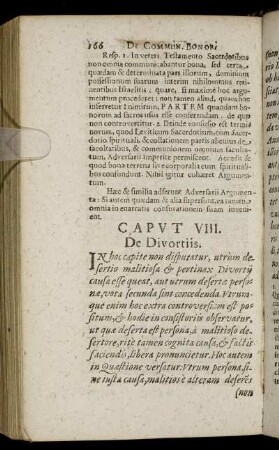 166 DE COMMUN. BONOR.
Resp. 1. In veteri Testamento Sacerdotibus
non omnia communicabantur bona, sed certa
quædam & determinata pars illorum, dominium
possessionum suarum interim nihilominus reti-
nentibus Israëlitis: quare, si maximè hoc argu-
mentum procederet; non tamen aliud, quam hoc
inferretur: nimirum, PARTEM quandam bo-
norum ad sacros usus esse conferendam, de quo
non controvertitur. 2. Deinde confusio est termi-
norum, quod Leviticum Sacerdotium cum Sacer-
dotio spirituali, & collationem partis alicuius de
facultatibus, & communionem omnium faculta-
tum, Adversarii imperitè permiscent. Accedit
quod bona terrena sive corporalia cum spirituali-
bus confundunt. Nihil igitur cohæret Argumen-
tum.
Hæc & similia adferunt Adversarii Argumen-
ta: Si autem quædam & alia supersunt, ea tamen
omnia in enarratis confutationem suam inveni-
ent.
CAPUT VIII.
De Divortiis.
IN hoc capite non disputatur, utrum de-
sertio malitiosa & pertinax Divortii
causa esse queat, aut utrum desertæ perso-
næ, vota secunda sint concedenda. Utrum-
que enim hoc extra controversiam est po-
situm, & hodie in consistoriis observatur,
ut quæ deserta est persona, à malitioso de-
sertore, rite tamen cognita causa, & factis
faciendis, libera pronuncietur. Hoc autem
in Quæstione versatur: Utrum persona, si-
ne iusta causa, malitiosè alteram deserēs
(non